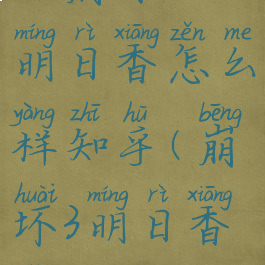 míng rì xiāng zěn me
明日香怎么
yàng zhī hū bēng
样知乎(崩
huài míng rì xiāng
坏3明日香